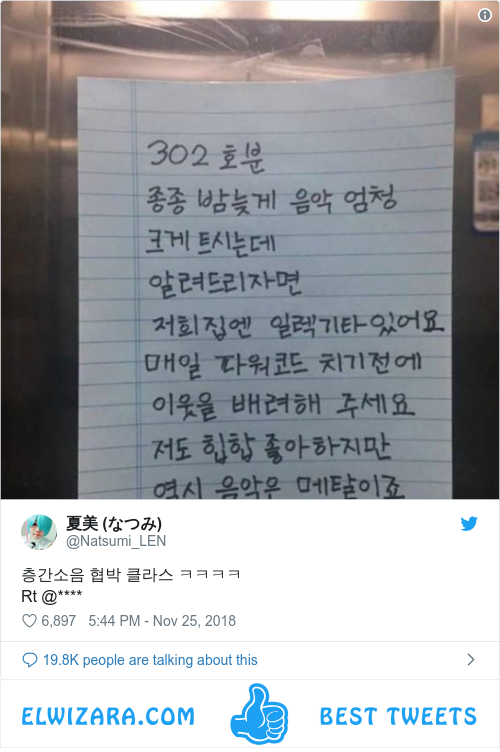 302 호분
종종 밤늦게 음악 엄청
크게 트시는데
알려드리자면
저희집엔 일렉기타있어요
매일 파워코드 치기전에
이웃을 배려해 주세요
저도 힙합 좋아하지만
역시 음악은 메탈이죠
夏美 (なつみ)
@Natsumi_LEN
층간소음 협박 클라스 ㅋㅋㅋㅋ
Rt @****
6,897 5:44 PM - Nov 25, 2018
19.8K people are talking about this
ELWIZARA.COM BEST TWEETS